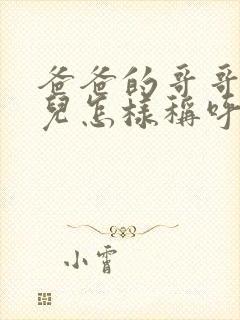 爸爸的哥哥
兒怎樣稱呼
小霄